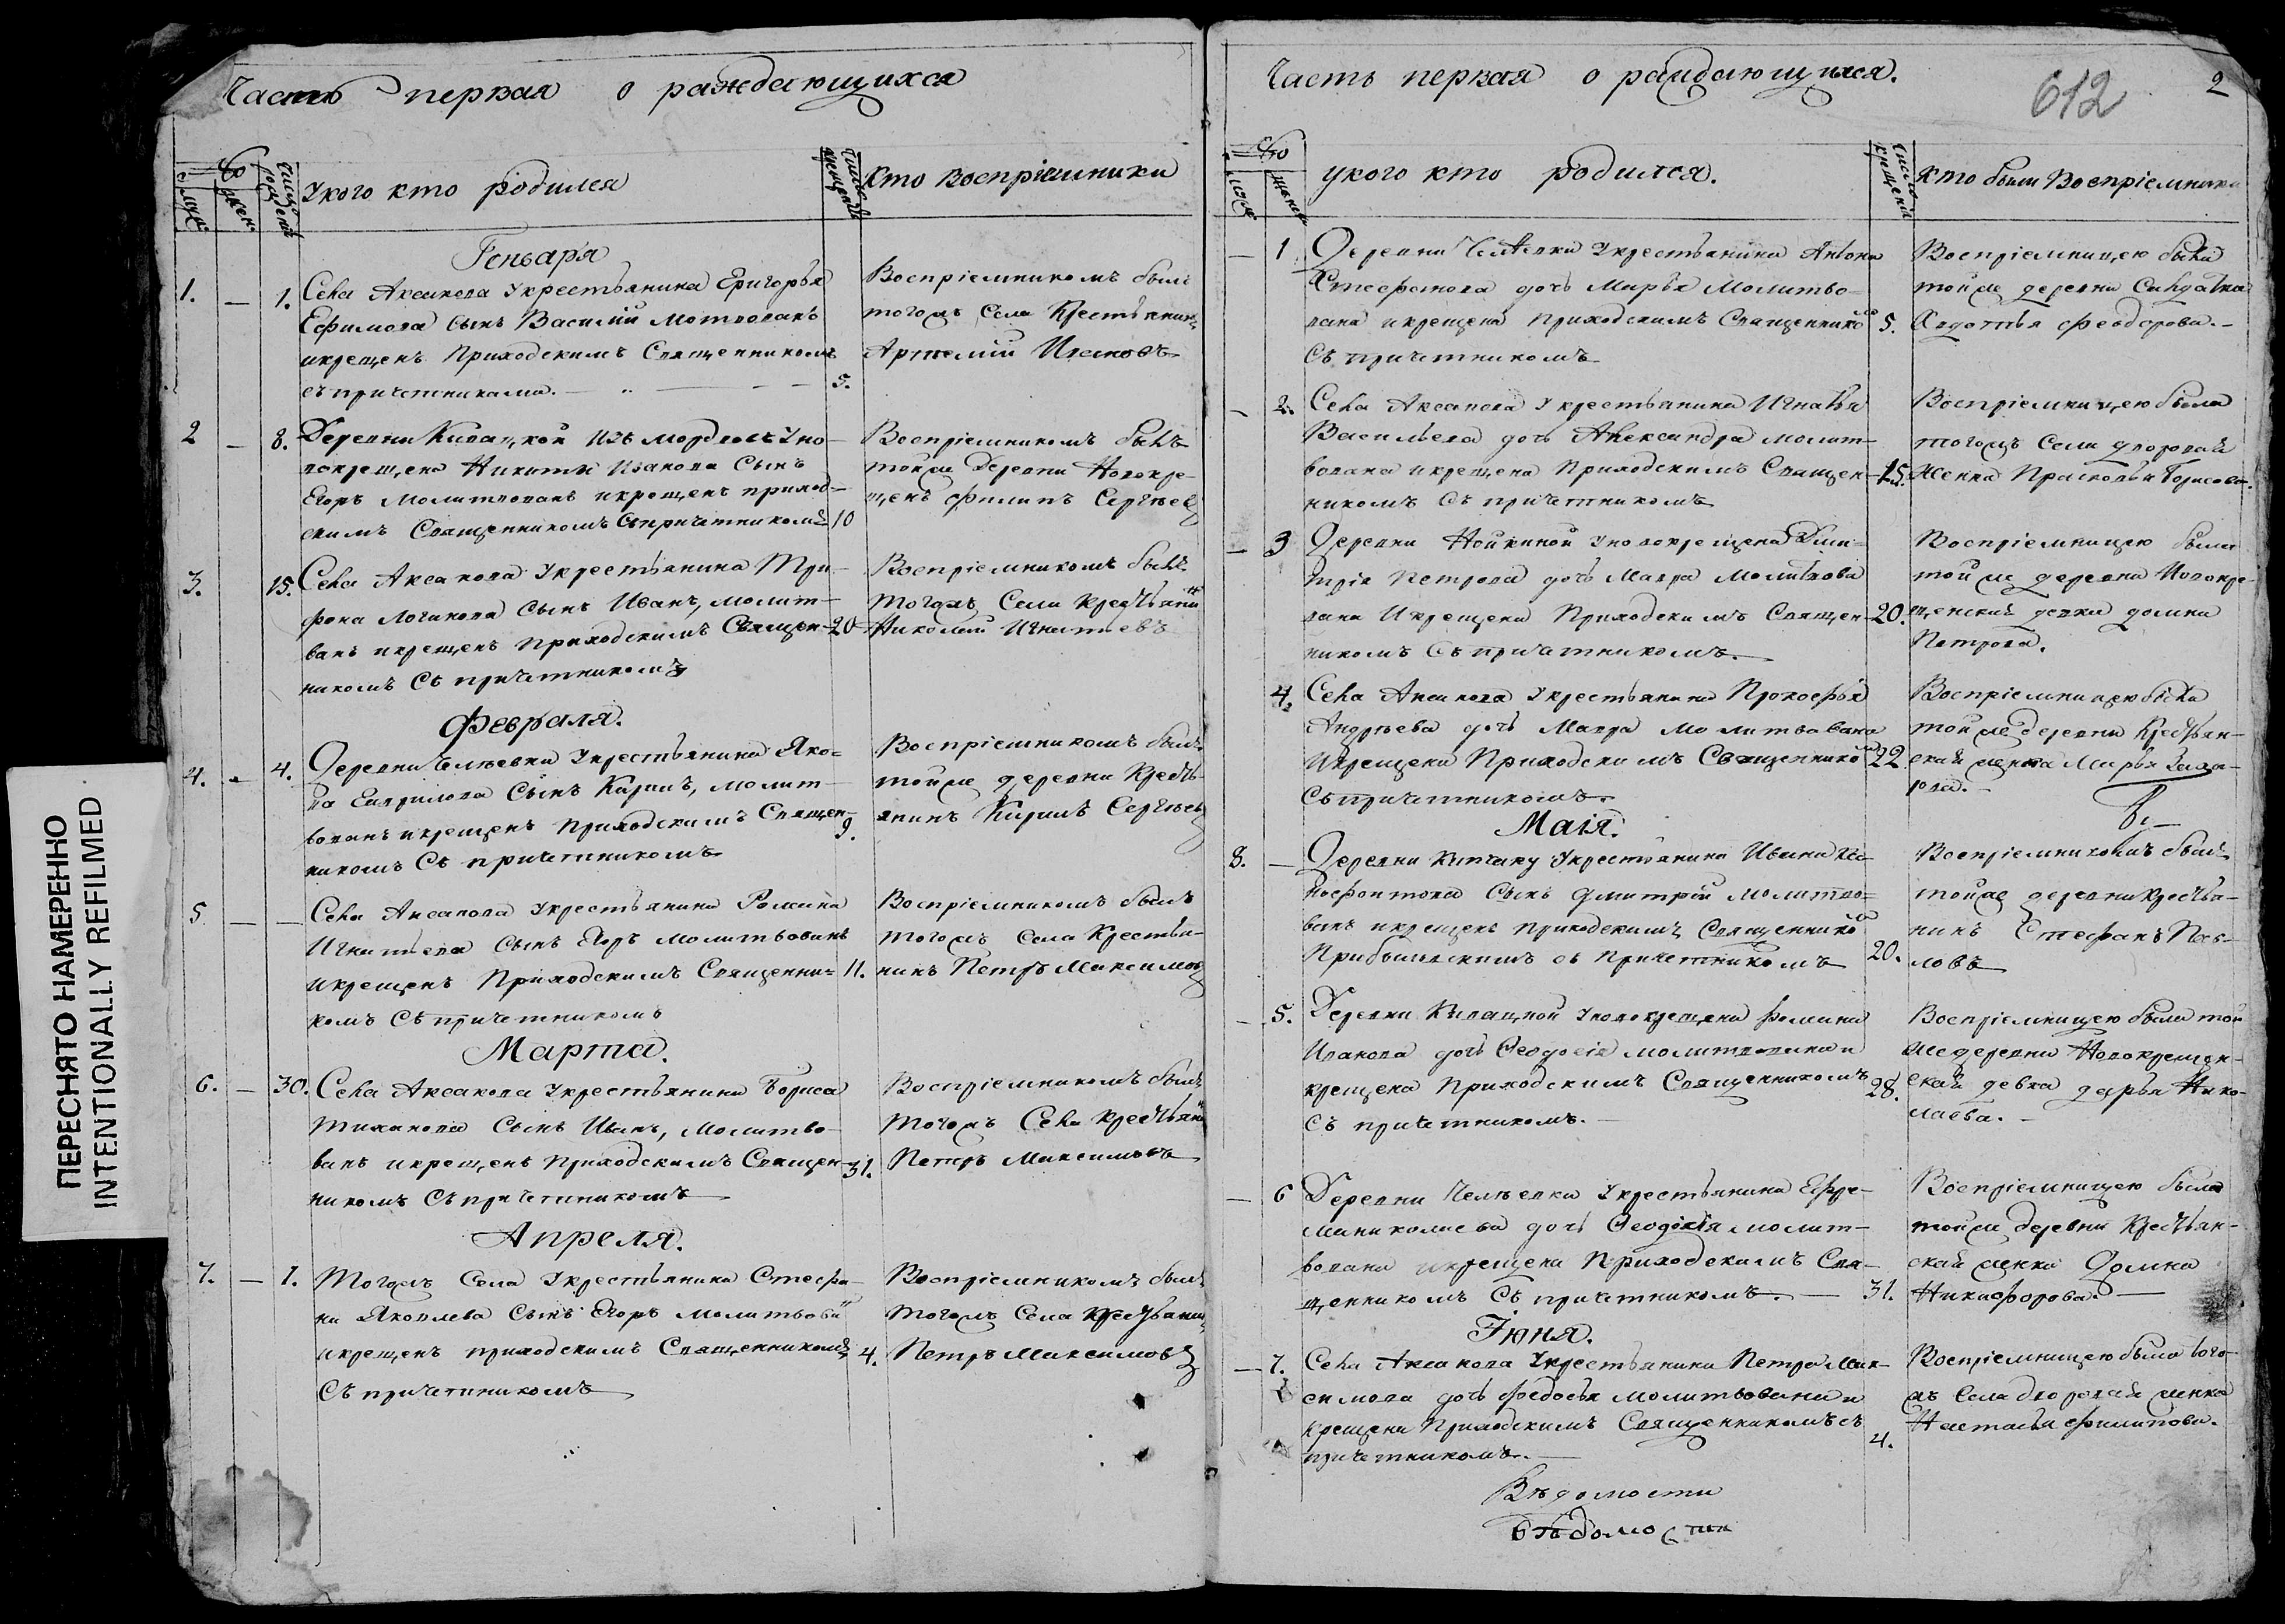 ПЕРЕСНЯТО НАМЕРЕННО
INTENTIONALLY REFILMED
Часть первая о раждающихся
у кого кто родился
Кто воспріемники
Генваря
1. — 1. Села Аксакова у крестьянина Григорья
Ефимова сынъ Василій молитвованъ
и крещенъ Приходскимъ Священникомъ
съ причетниками. — 5.
Воспріемникомъ былъ
тогожъ Села Крестьянинъ
Артемій
2 — 8. Деревни Кивацкой изъ мордвы у но-
вокрещена Никиты Ивакова Сынъ
Егоръ молитвованъ и крещенъ приход-
скимъ Священникомъ съ причетникомъ 10
Воспріемникомъ былъ
тойже Деревни Новокре-
щенъ Филипъ Сергѣевъ
3. 15. Села Аксакова у крестьянина Три-
фона Логинова Сынъ Иванъ, молит-
ванъ и крещенъ Приходскимъ Священ- 20
никомъ Съ причетникомъ
Воспріемникомъ былъ
тогожъ Села крестьянинъ
Николай Игнатьевъ
Февраля.
4. - 4. Деревни Челѣевки у крестьянина Яко-
ва Гаврилова Сынъ Кирилъ, молит-
вованъ и крещенъ приходскимъ Священ- 9.
никомъ Съ причетникомъ
Воспріемникомъ былъ
тойже деревни Кресть-
янинъ Кирилъ Сергѣевъ
5 — — Села Аксакова у крестьянина Романа
Игнатьева Сынъ Егоръ молитвованъ
и крещенъ Приходскимъ Священни- 11.
комъ Съ причетникомъ
Воспріемникомъ былъ
тогожъ Села Крестья-
нинъ Петръ Максимовъ
Марта.
6. — 30. Села Аксакова у крестьянина Бориса
Тиханова Сынъ Иванъ, молитво-
ванъ и крещенъ Приходскимъ Священ- 31.
никомъ Съ причетникомъ
Воспріемникомъ былъ
тогожъ Села крестьянинъ
Петръ Максимовъ
Апреля.
7. — 1. Тогожъ Села у крестьянина Стефа-
на Яковлева Сынъ Егоръ молитвованъ
и крещенъ приходскимъ Священникомъ 4.
Съ причетникомъ
Воспріемникомъ былъ
тогожъ Села крестьянинъ
Петръ Максимовъ
Часть первая о раждающихся.
612
2
у кого кто родился.
Кто были Воспріемники
— 1. Деревни Челѣевки у крестьянина Антона
Стефанова дочь Марья молитво-
вана и крещена Приходскимъ Священникомъ 5.
Съ причетникомъ
Воспріемницею была
тойже деревни Салдатка
Авдотья Феодорова. —
— 2. Села Аксакова у крестьянина Игнатья
Васильева дочь Александра молит-
вована и крещена Приходскимъ Священ- 15.
никомъ Съ причетникомъ
Воспріемницею была
тогожъ Села дворовай
Женка Прасковья Борисова.
— 3 Деревни Нойкиной у новокрещена Дми-
трія Петрова дочь Мавра Молитвова
вана и крещена Приходскимъ Священ- 20.
никомъ Съ причетникомъ.
Воспріемницею была
тойже деревни Новокре-
щенскай девка Домна
Петрова.
4. Села Аксакова у крестьянина Прокофья
Андрѣева дочь Мавра молитвована
и крещена Приходскимъ Священникомъ 22
Съ причетникомъ.
Воспріемницею была
тойже деревни Крестьян-
скай женка Марья
Маія.
8. — Деревни Кипчаку у крестьянина Ивана Ке-
нофонтова Сынъ Дмитрій молитво-
ванъ и крещенъ приходскимъ Священникомъ
Прибыловскимъ съ Причетникомъ 20.
Воспріемникомъ былъ
тойже деревни крестья-
нинъ Стефанъ Пав-
ловъ
— 5. Деревни Кивацкой у новокрещена Фомина
Ивакова дочь Феодосія молитвована и
крещена Приходскимъ Священникомъ 28.
Съ причетникомъ. —
Воспріемницею была той
же деревни Новокрещен-
скай девка Дарья Нико-
лаева. —
— 6 Деревни Челѣевки у крестьянина Ефре-
ма Николаева дочь Феодосія молит-
вована и крещена Приходскимъ Свя-
щенникомъ Съ причетникомъ. — 31.
Воспріемницею была
тойже деревни Крестьян-
скай женка Домна
Никифорова. —
Іюня.
— 7. Села Аксакова у крестьянина Петра Мак-
симова дочь Федосья молитвована и
крещена Приходскимъ Священникомъ съ
причетникомъ. — 4.
Воспріемницею была того-
жъ Села дворовай женка
Настасья Филипова.
Вѣдомости
Вѣдомости